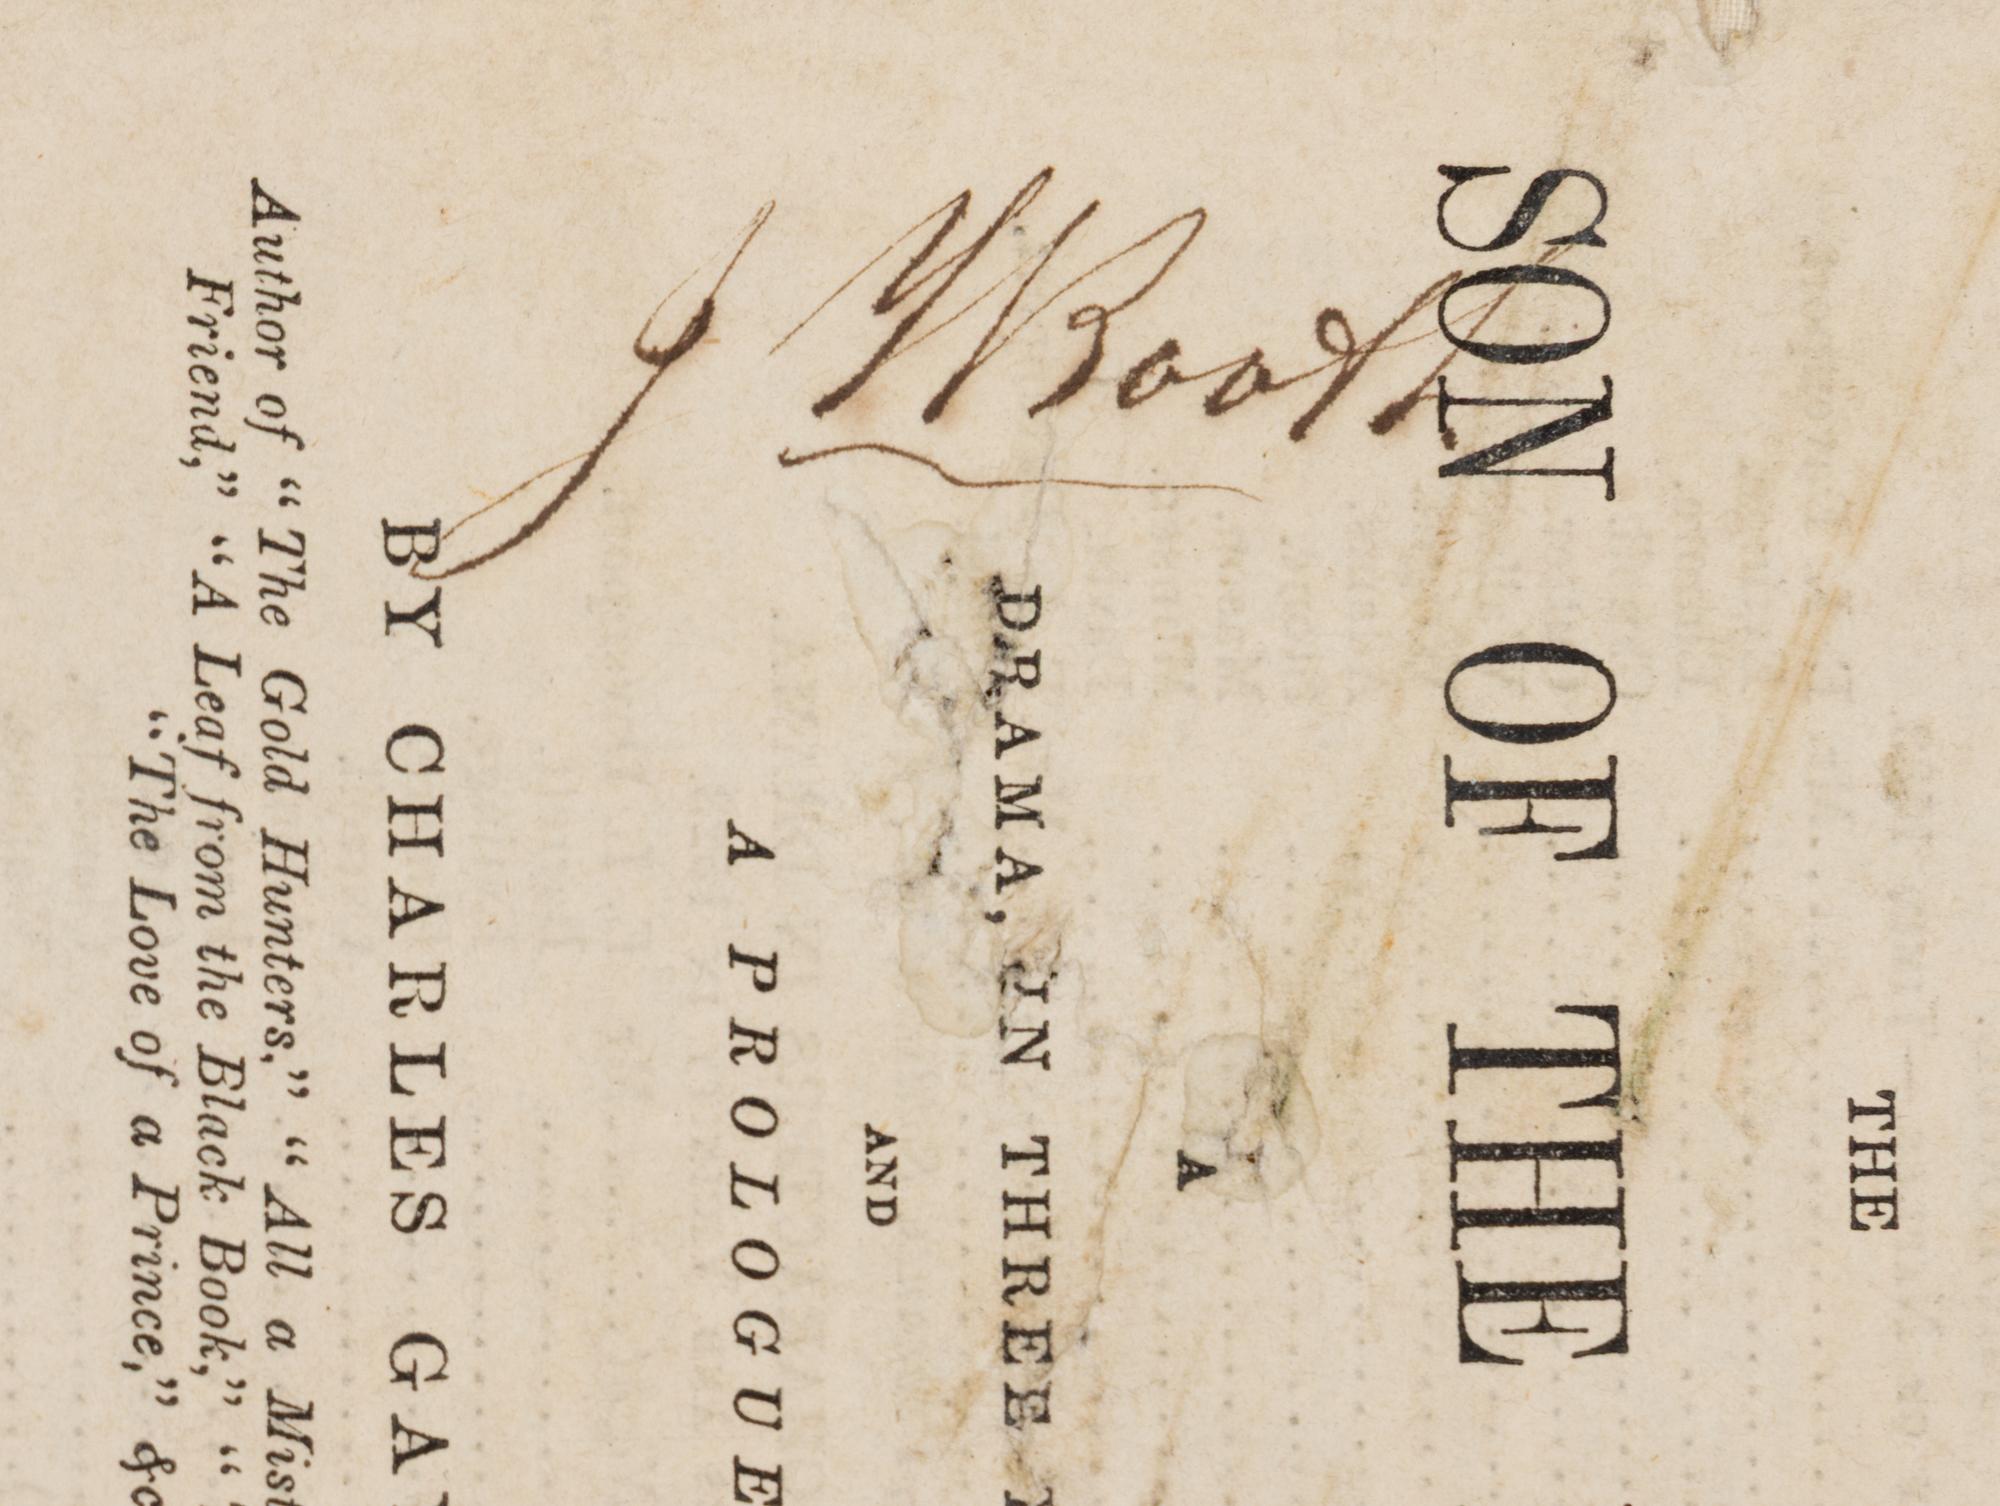 THE
SON OF THE
A
DRAMA, IN THREE
AND
A PROLOGUE
BY CHARLES GA
Author of "The Gold Hunters," "All a Mist
Friend," "A Leaf from the Black Book," "
"The Love of a Prince," &c
J W Booth